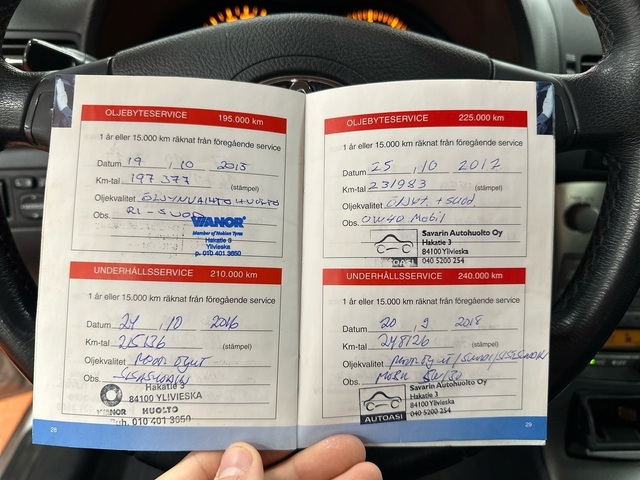 OLJEBYTESERVICE 195.000 km
1 år eller 15.000 km räknat från föregående service
Datum 19 , 10 2015
Km-tal 197 377
(stämpel)
Oljekvalitet ÖLJYNVAIHTO HUOLTO
Obs. RI-SUOD
VIANOR
Member of Nokian Tyres
Hakatie 3
Ylivieska
p. 010 401 3650
UNDERHÅLLSSERVICE 210.000 km
1 år eller 15.000 km räknat från föregående service
Datum 24 , 10 2016
Km-tal 215136
(stämpel)
Oljekvalitet Moott öljyt
Obs. SISÄSUOD
Hakatie 3
84100 YLIVIESKA
VIANOR HUOLTO
Puh. 010 401 3650
28
OLJEBYTESERVICE 225.000 km
1 år eller 15.000 km räknat från föregående service
Datum 25 , 10 2017
Km-tal 231983
(stämpel)
Oljekvalitet Öljyt. + suod
Obs. 0W40 Mobil
Savarin Autohuolto Oy
Hakatie 3
84100 Ylivieska
040 5200 254
AUTOASI
UNDERHÅLLSSERVICE 240.000 km
1 år eller 15.000 km räknat från föregående service
Datum 20 , 9 2018
Km-tal 248126
(stämpel)
Oljekvalitet
Obs. Mobil 5W/30
Savarin Autohuolto Oy
Hakatie 3
84100 Ylivieska
040 5200 254
AUTOASI
29